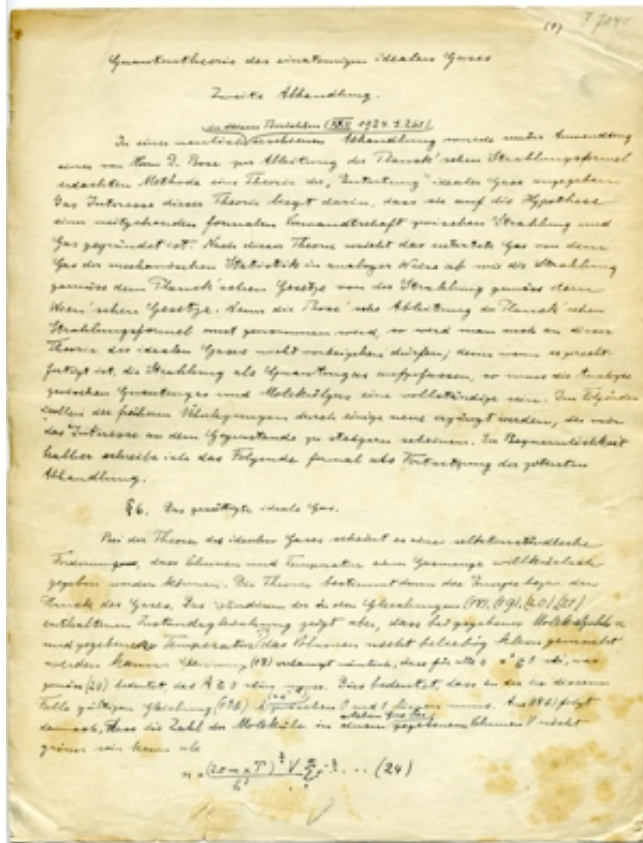 (1)
Quantentheorie des einatomigen idealen Gases
Zweite Abhandlung.
in diesen Berichten (XXII 1924. S. 261)
In einer neulich erschienen Abhandlung wurde unter Anwendung
einer von Herrn D. Bose zur Ableitung der Planck'schen Strahlungsformel
erdachten Methode eine Theorie der „Entartung" idealer Gase angegeben.
Das Interesse dieser Theorie liegt darin, dass sie auf die Hypothese
einer weitgehenden formalen Verwandtschaft zwischen Strahlung und
Gas gegründet ist. Nach dieser Theorie weicht das entartete Gas von dem
Gas der mechanischen Statistik in analoger Weise ab wie die Strahlung
gemäss dem Planck'schen Gesetze von der Strahlung gemäss dem
Wien'schen Gesetze. Wenn die Bose'sche Ableitung der Planck'schen
Strahlungsformel ernst genommen wird, so wird man auch an dieser
Theorie des idealen Gases nicht vorbeigehen dürfen; denn wenn es gerecht-
fertigt ist, die Strahlung als Quantengas aufzufassen, so muss die Analogie
zwischen Quantengas und Molekülgas eine vollständige sein. Im Folgenden
sollen die früheren Überlegungen durch einige neue ergänzt werden, die mir
das Interesse an dem Gegenstande zu steigern scheinen. Der Bequemlichkeit
halber schreibe ich das Folgende formal als Fortsetzung der zitierten
Abhandlung.
§6. Das gesättigte ideale Gas.
Bei der Theorie des idealen Gases scheint es eine selbstverständliche
Forderung, dass Volumen und Temperatur einer Gasmenge willkürlich
gegeben werden können. Die Theorie bestimmt dann die Energie bezw. den
Druck des Gases. Das Studium der in den Gleichungen (18), (19), (20), (21)
enthaltenen Zustandsgleichung zeigt aber, dass bei gegebener Molekülzahl n
und gegebener Temperatur das Volumen nicht beliebig klein gemacht
werden kann. (18) verlangt nämlich, dass für alle s sei, was
gemäss (20) bedeutet, das A ≧ 0 sein muss. Dies bedeutet, dass in der in diesem
Falle gültigen Gleichung λ zwischen 0 und 1 liegen muss. Aus folgt
demnach, dass die Zahl der Moleküle in einem gegebenem Volumen V nicht
grösser sein kann als
n = (2πmκT)^{3/2} V / h³ Σ … (24)